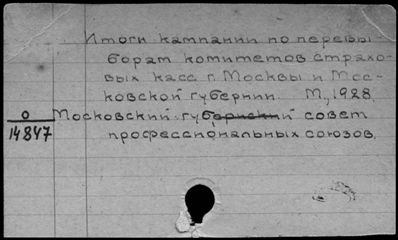 Итоги кампании по перевы
борам комитетов страхо-
вых касс г. Москвы и Мос-
ковской губернии. М., 1928.
О
14847
Московский губернский совет
профессиональных союзов.